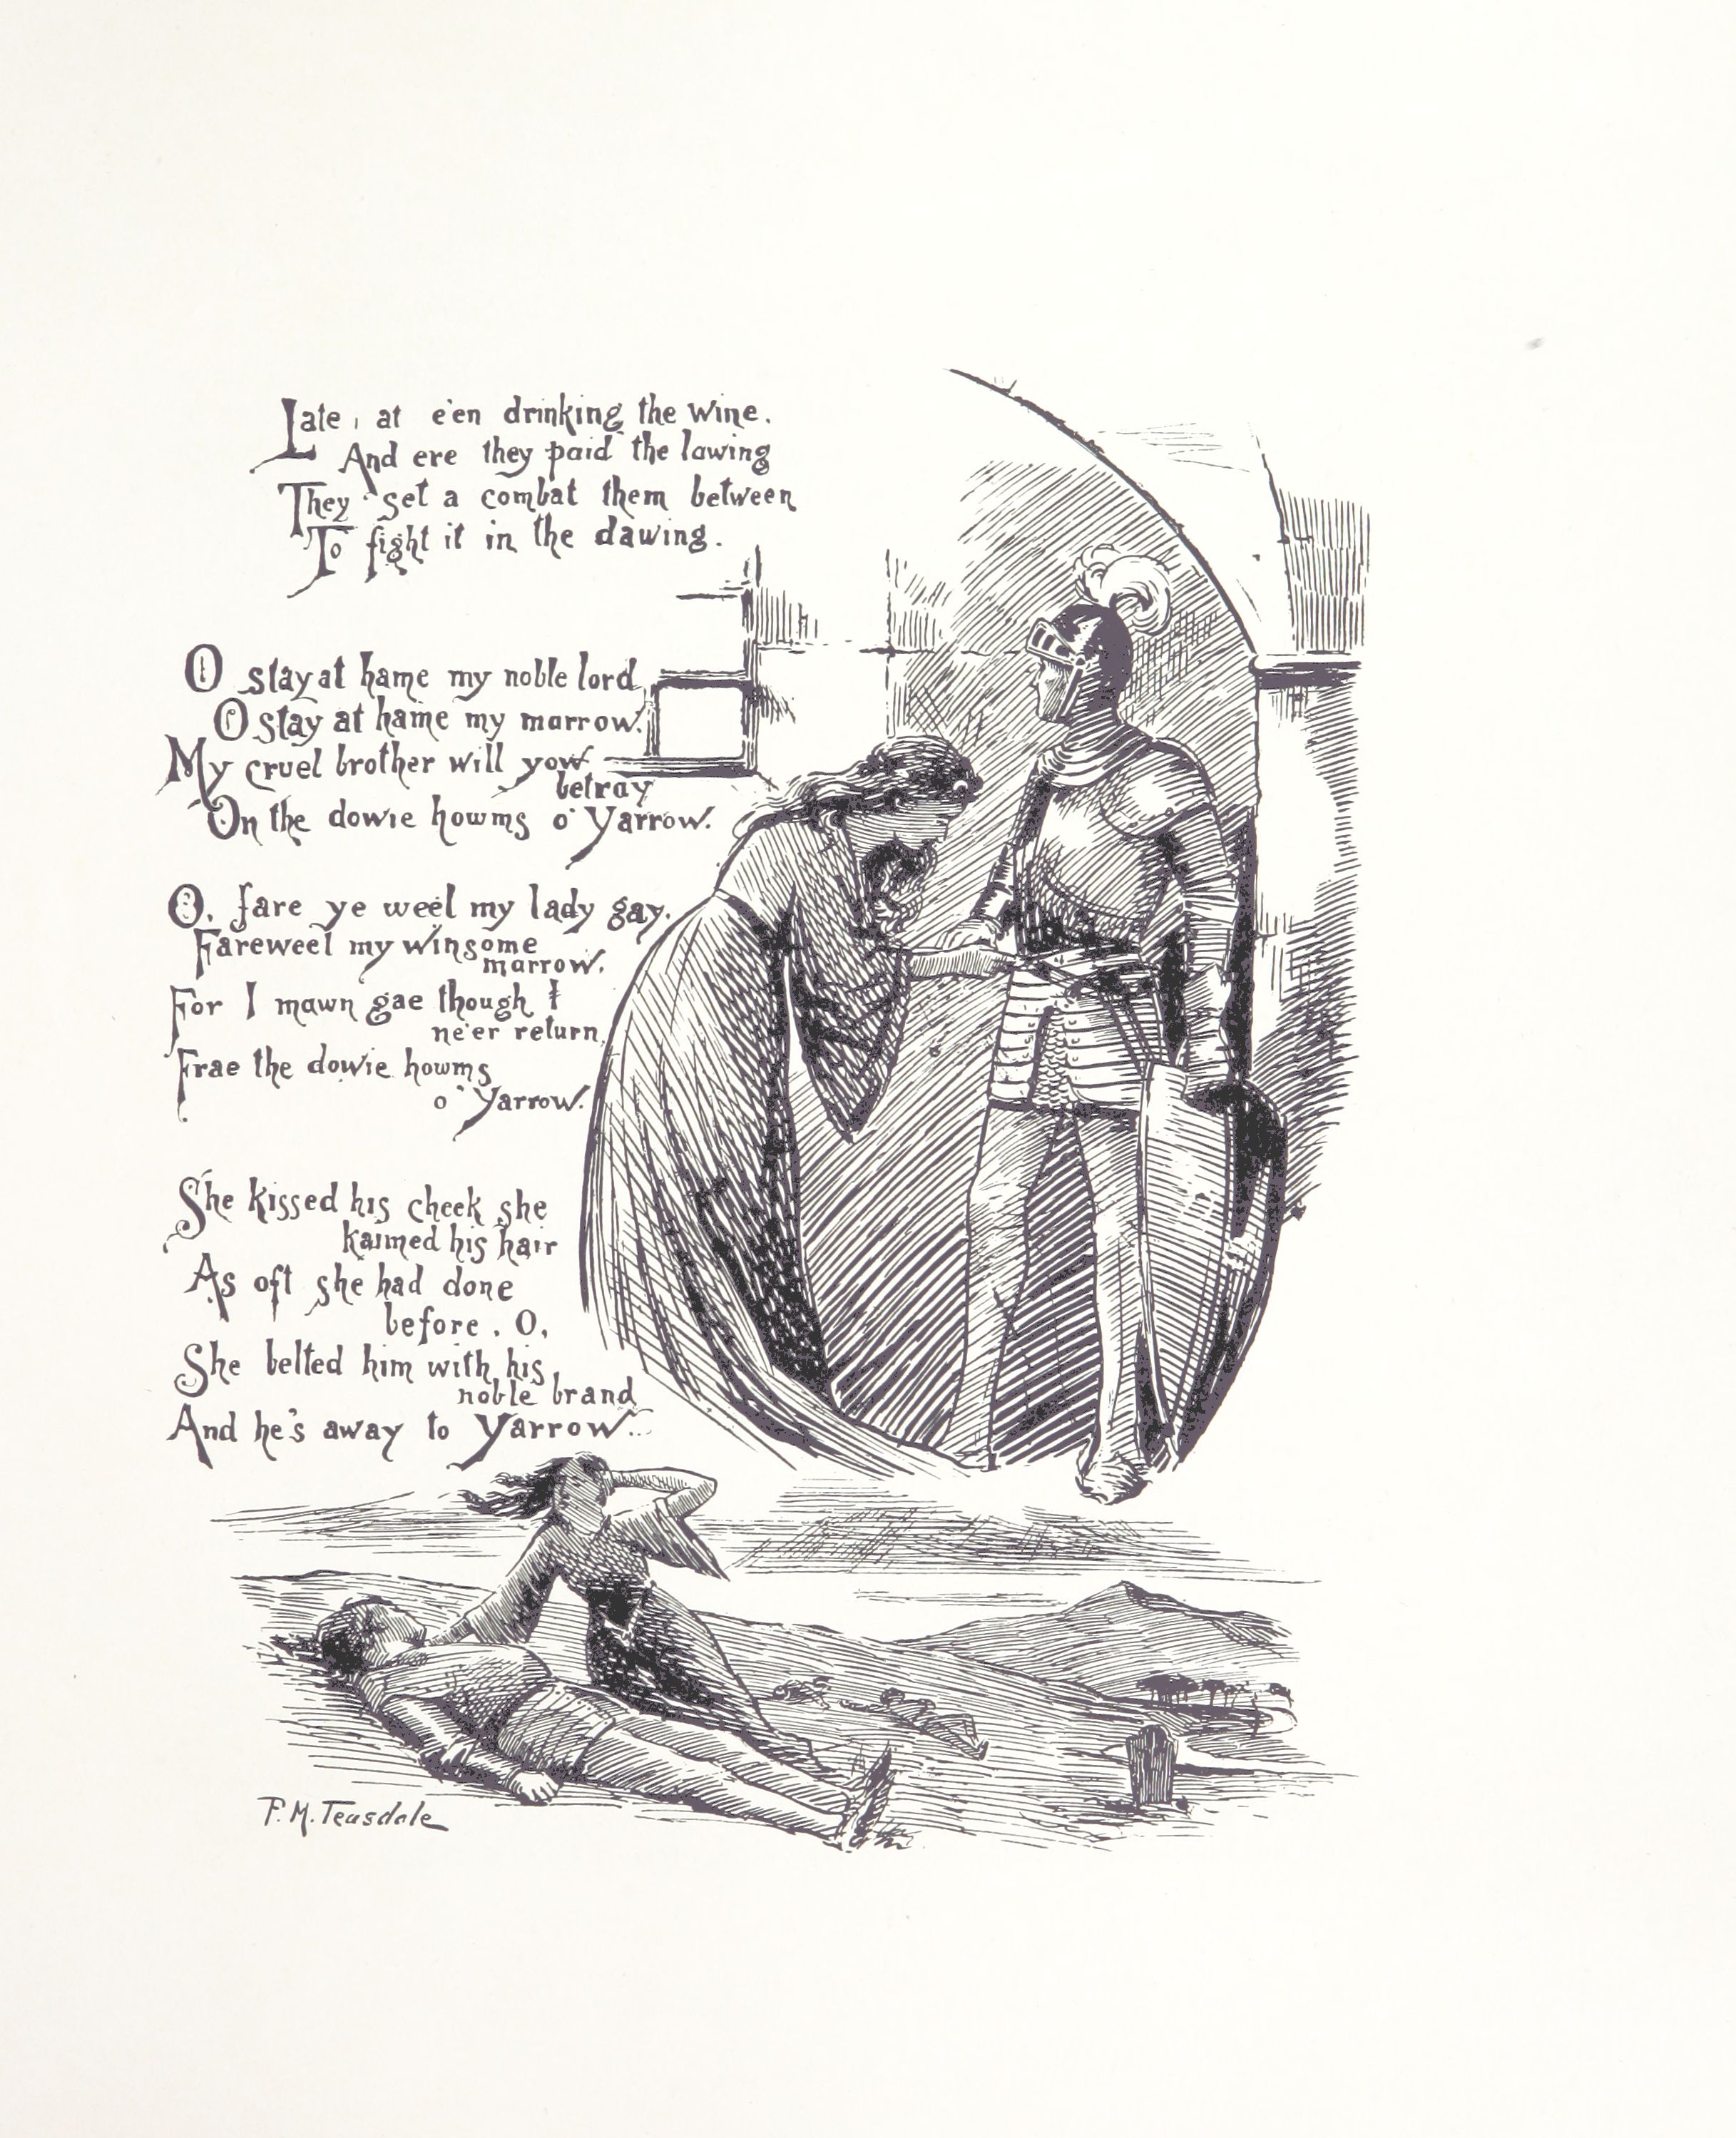 Late, at e'en drinking the wine.
And ere they paid the lawing
They set a combat them between
To fight it in the dawing.
O stay at hame my noble lord
O stay at hame my marrow.
My cruel brother will yow
betray
On the dowie howms o' Yarrow.
O, fare ye weel my lady gay,
Fareweel my winsome
marrow.
For I mawn gae though I
ne'er return,
Frae the dowie howms
o' Yarrow.
She kissed his cheek she
kaimed his hair
As oft she had done
before, O,
She belted him with his
noble brand
And he's away to Yarrow.
F. M. Teasdale